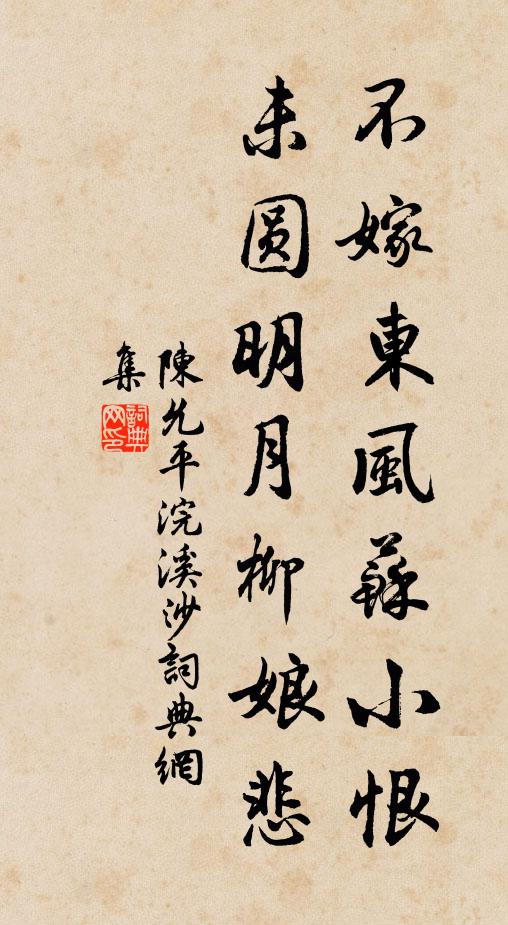 不嫁東風蘇小恨
未圆明月柳娘悲
陳允平浣溪沙詞典網
集
詞典网印